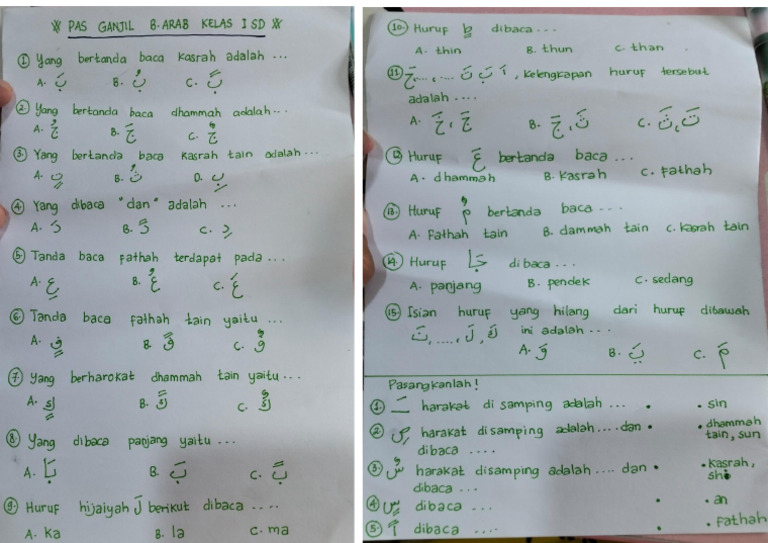 ※ PAS GANJIL B. ARAB KELAS I SD ※
① Yang bertanda baca kasrah adalah ...
A. بَ B. بُ C. بً
② Yang bertanda baca dhammah adalah ...
A. حُ B. حَ C. حٌ
③ Yang bertanda baca kasrah tain adalah ...
A. بٍ B. ثُ D. بِ
④ Yang dibaca "dan" adalah ...
A. دَ B. دً C. دِ
⑤ Tanda baca fathah terdapat pada ...
A. عِ B. عُ C. عَ
⑥ Tanda baca fathah tain yaitu ...
A. قٍ B. قً C. قٌ
⑦ Yang berharokat dhammah tain yaitu ...
A. كٍ B. كً C. كٌ
⑧ Yang dibaca panjang yaitu ...
A. بَا B. بَ C. بً
⑨ Huruf hijaiyah لَ berikut dibaca ....
A. ka B. la C. ma
⑩ Huruf dibaca ...
A. thin B. thun C. than
⑪ حَ ...., .... تَ بَ اَ , kelengkapan huruf tersebut
adalah ....
A. حَ , حَ B. جَ , ثَ C. تَ , ثَ
⑫ Huruf عَ bertanda baca ...
A. dhammah B. Kasrah C. Fathah
⑬ Huruf مٌ bertanda baca ...
A. Fathah tain B. dammah tain C. kasrah tain
⑭ Huruf جَا dibaca ...
A. panjang B. pendek C. sedang
⑮ Isian huruf yang hilang dari huruf dibawah
كَ , لَ , .... , نَ ini adalah ...
A. وَ B. يَ C. مَ
Pasangkanlah !
① ـَ harakat di samping adalah ... • • sin
② صِ harakat disamping adalah .... dan • • dhammah
dibaca .... tain, sun
③ سٌ harakat disamping adalah .... dan • • kasrah,
dibaca ... shi
④ سٍ dibaca ... • • an
⑤ اً dibaca .... • • Fathah